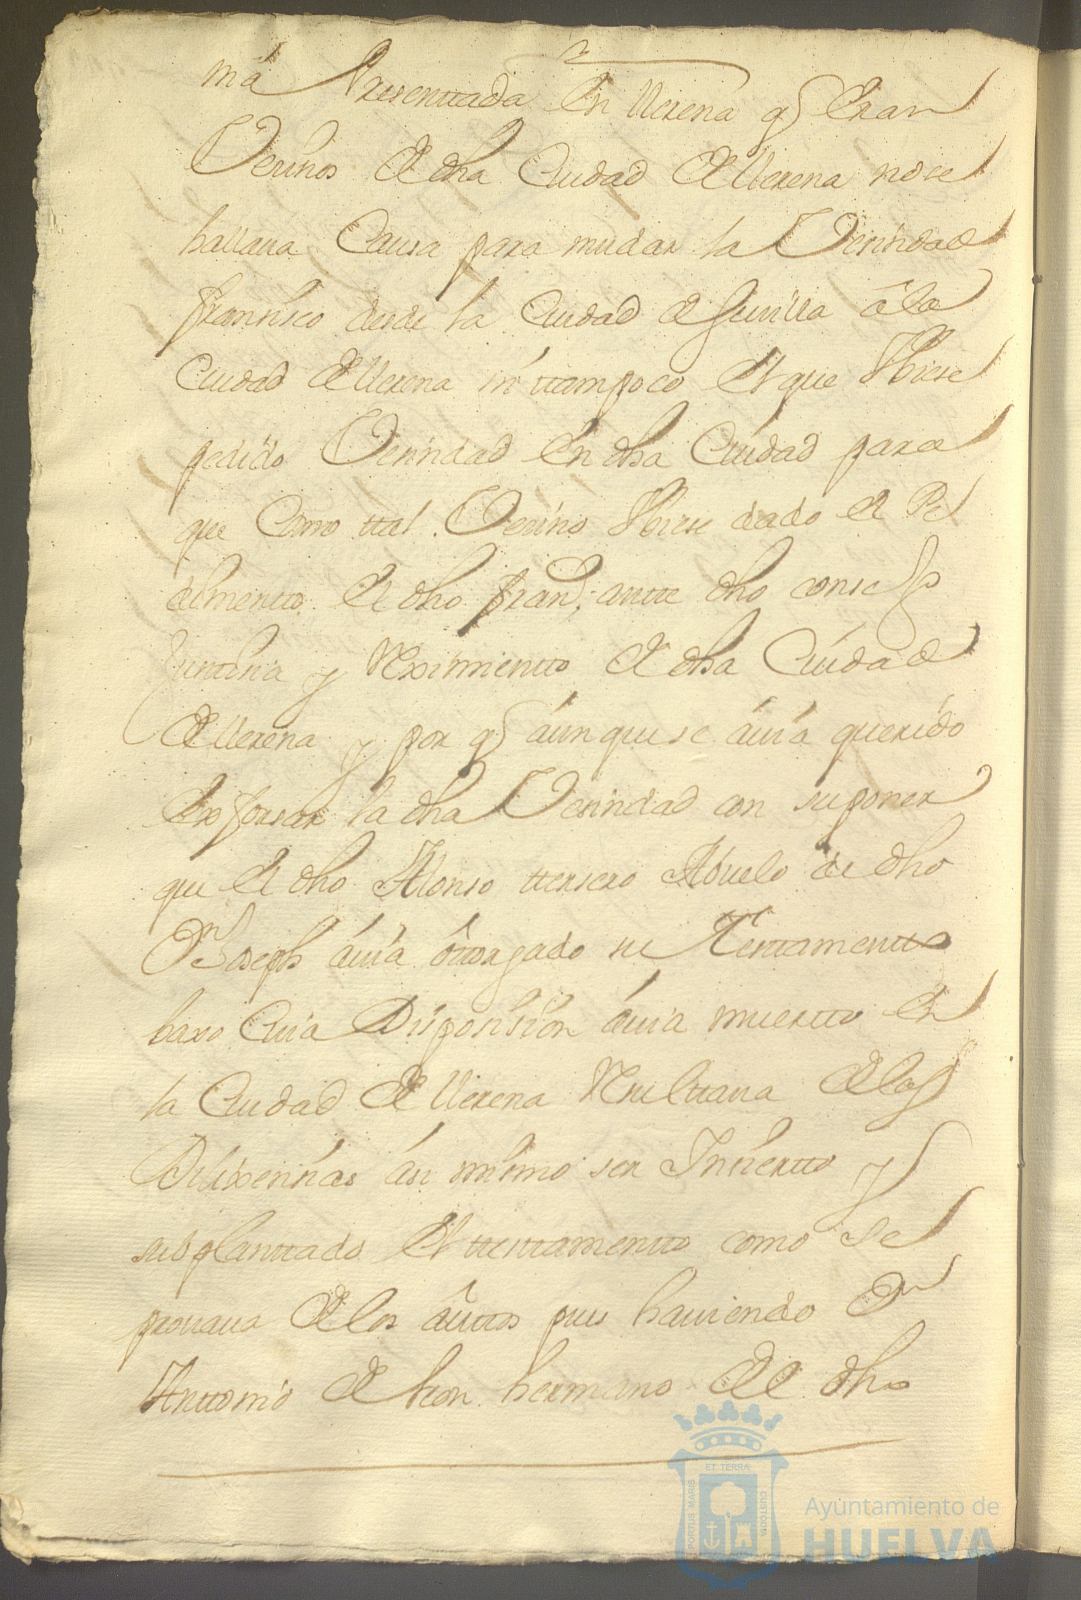 ma Presenttada En llerena q̃ Eran
Vecinos de dha Ciudad de llerena no se
hallava Causa para mudar la Vecindad
francisco desde la Ciudad de Sevilla â la
Ciudad de llerena ni ttampoco el que Ubiese
pedido Vecindad En dha Ciudad para
que Como ttal Vecino Ubiese dado el Pe
dimentto el dho fran.co antte dho consejo
Justticia y Reximientto de dha Ciudad
de llerena y por q̃ áunque se ávia querido
Exforsar la dha Vecindad con suponer
que el dho Alonso ttersero Abuelo de dho
Dn Joseph ávia ôtorgado su Testtamentto
baxo Cuia Disposision ávia muertto en
la Ciudad de llerena Resulttava de las
Dilixencias ási mismo ser Incierto y
suplanttado el ttesttamentto como se
provava de los áuttos pues haviendo Dn
Anttonio de leon hermano de el dho
PORTUS MARIS
ET TERRÆ
CUSTODIA
Ayuntamiento de
HUELVA